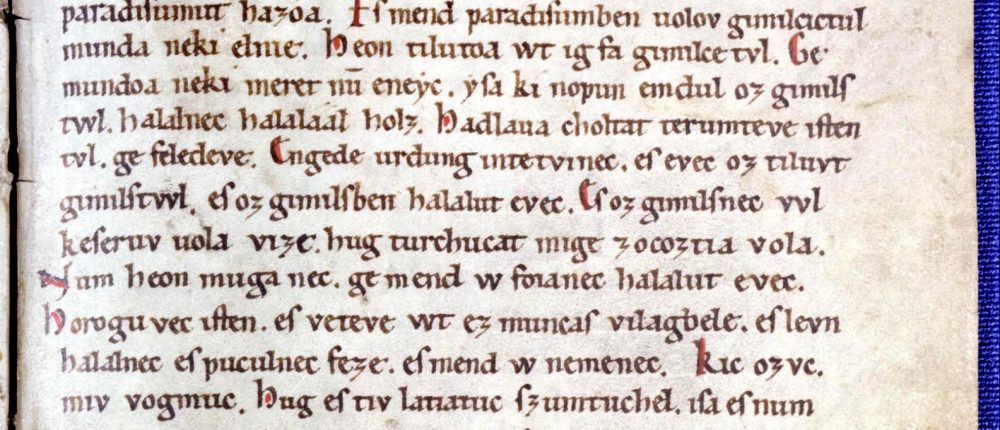 paradisumut hazoa. Es mend paradisumben uolov gimilcictul
munda neki elnie. Heon tilutoa wt ig fa gimilce tvl. Ge
mundoa neki meret nū eneyc. ysa ki nopun emdul oz gimils
twl. halalnec halalaal holz. Hadlaua choltat terumteve isten
tvl. ge feledeve. Engede urdung intetvinec. es evec oz tiluvt
gimilstvvl. es oz gimilsben halalut evec. Es oz gimilsnec vvl
keseruv uola vize. hug turchucat mige zocoztia vola.
Num heon muga nec. ge mend w foianec halalut evec.
Horogu vec isten. es veteve wt ez muncas vilagbele. es levn
halalnec es puculnec feze. es mend w nemenec. Kic ozvc.
miv vogmuc. Hug es tiv latiatuc szumtuchel. isa es num